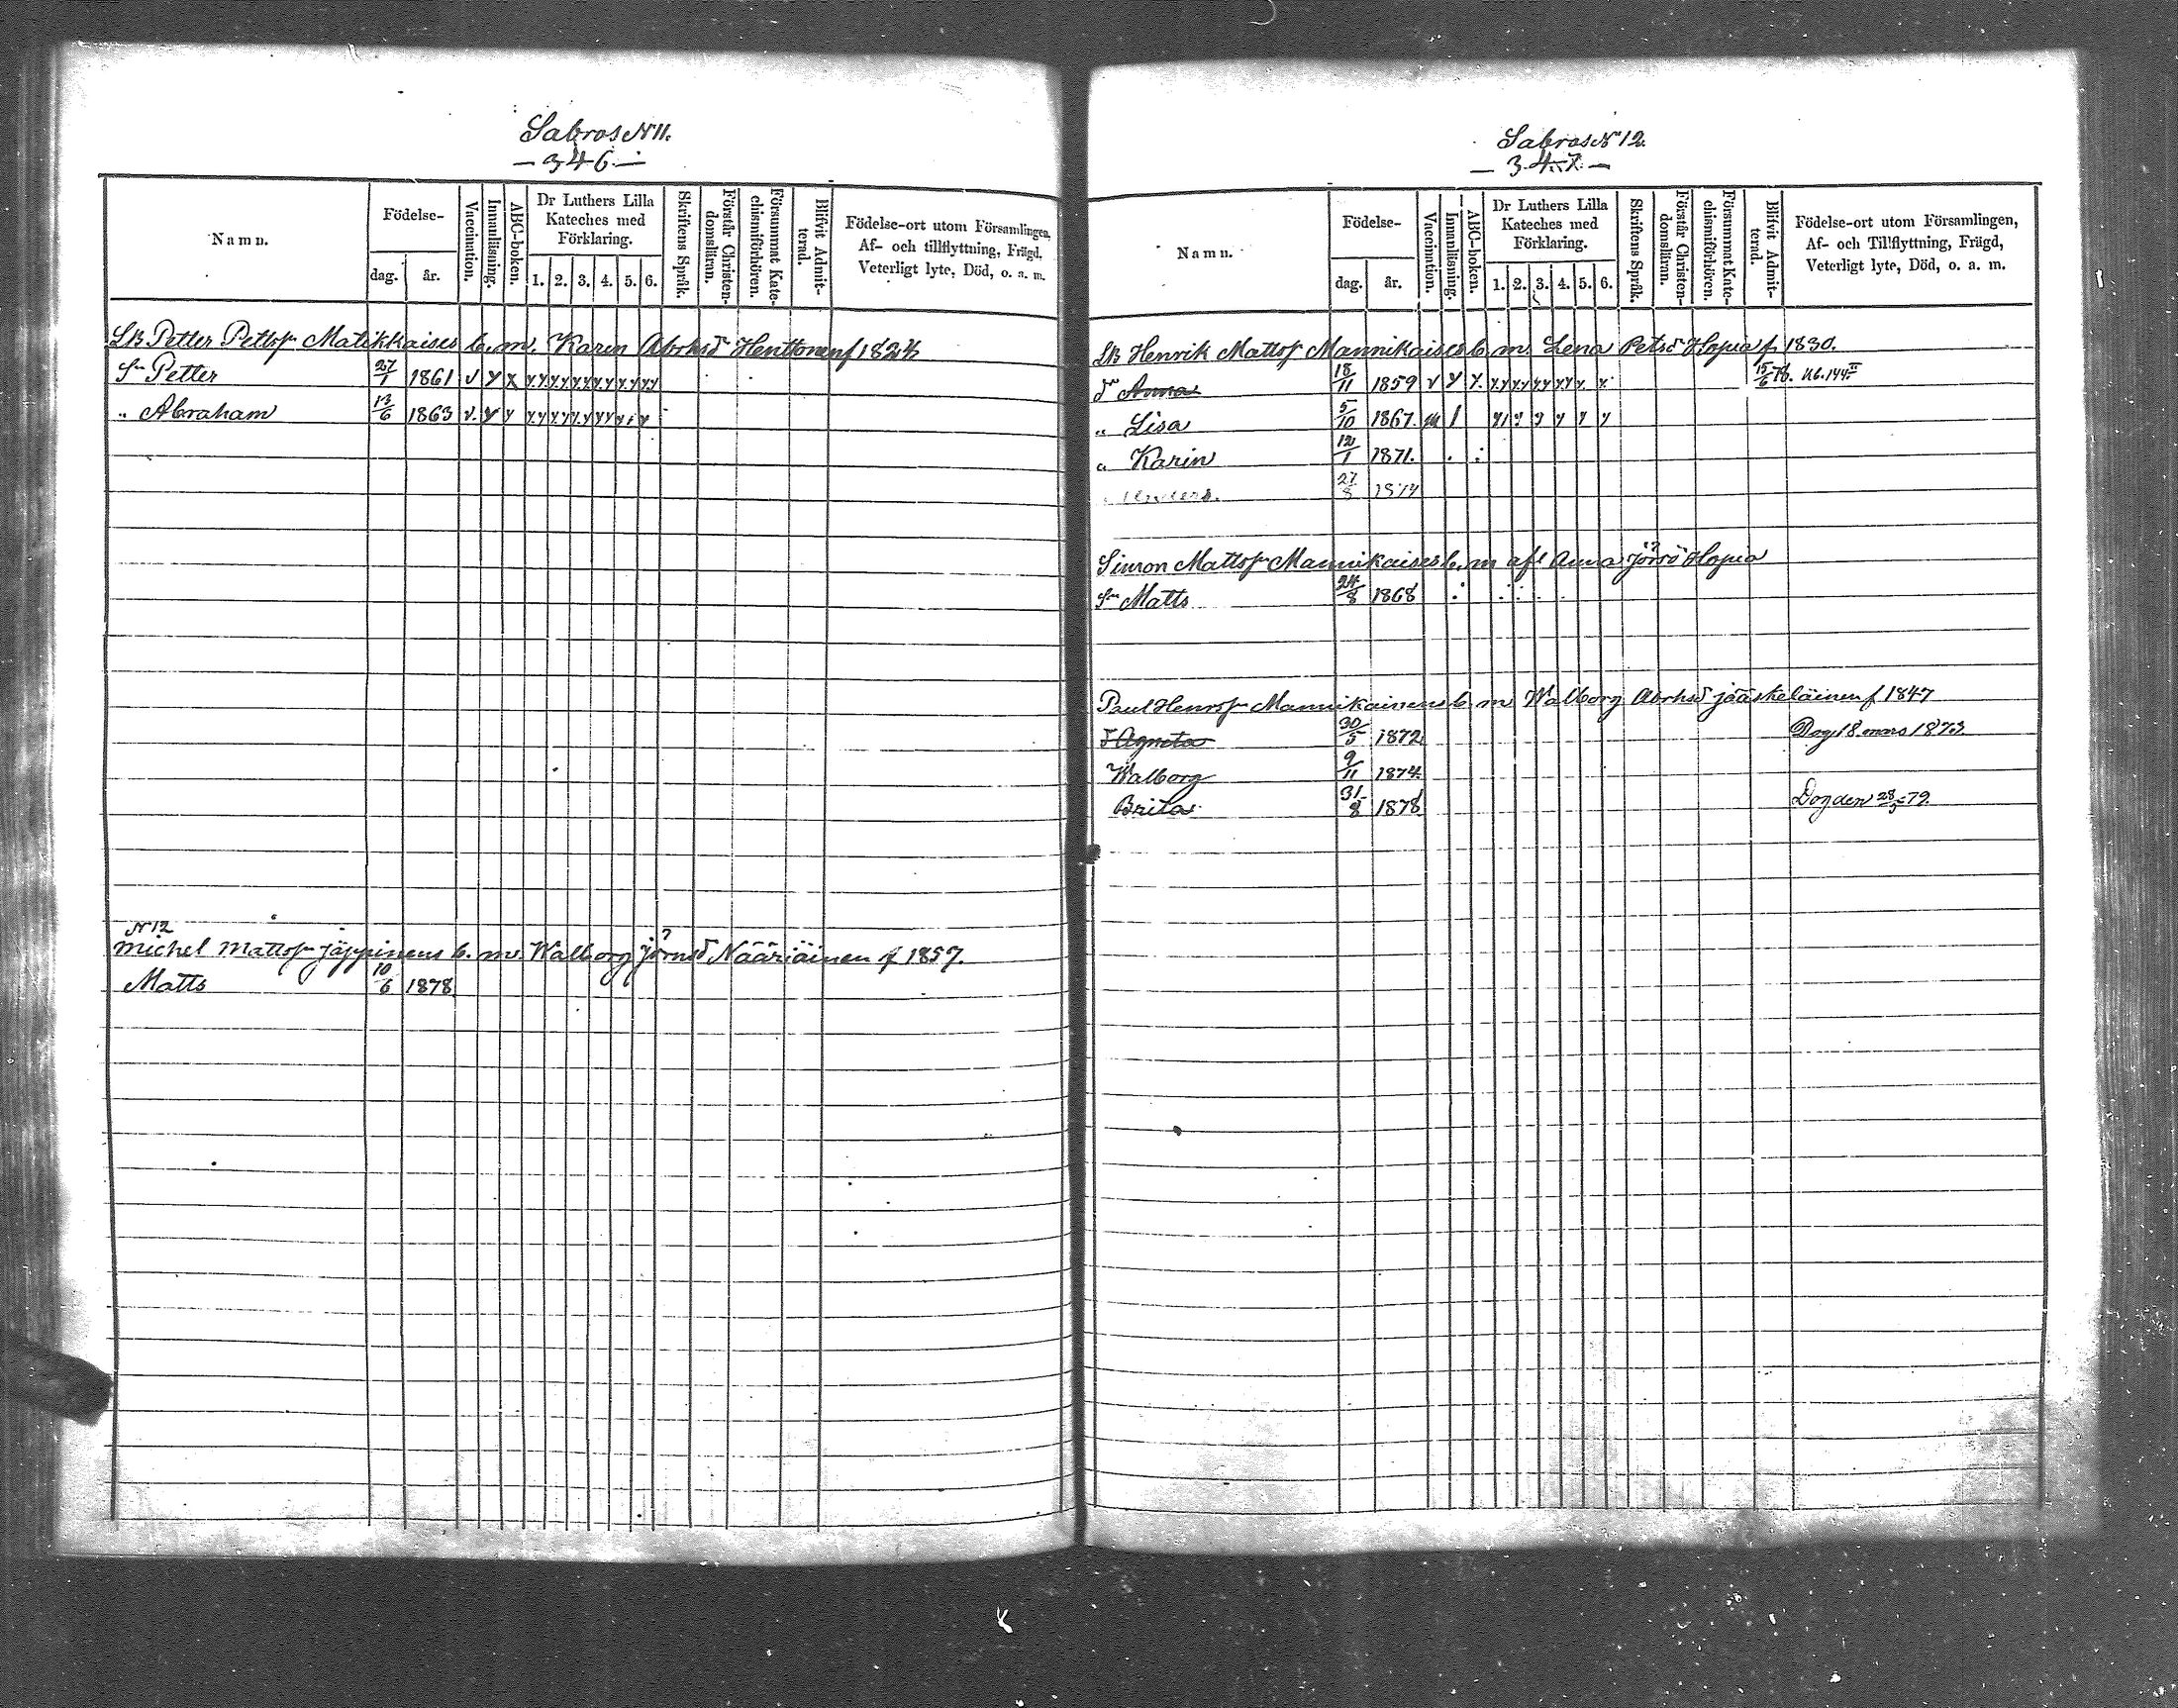 Sabros N 11.
— 346. —
Namn.
Födelse-
dag.
år.
Vaccination.
Innanläsning.
ABC-boken.
Dr Luthers Lilla
Kateches med
Förklaring.
1. 2. 3. 4. 5. 6.
Skriftens Språk.
Förstår Christen-
domsläran.
Försummat Kate-
chismiförhören.
Blifvit Admit-
terad.
Födelse-ort utom Församlingen,
Af- och tillflyttning, Frägd,
Veterligt lyte, Död, o. a. m.
Petter Petts Matikkaises b. m. Karin Abrhsd Henttonen f 1824
Sn Petter 27/1 1861
„ Abraham 13/6 1863
N 12
Michel Matts Jäppinens b. m. Walborg Nääriäinen f 1857.
Matts 10/6 1878
Sabros N 12.
— 347. —
Namn.
Födelse-
dag.
år.
Vaccination.
Innanläsning.
ABC-boken.
Dr Luthers Lilla
Kateches med
Förklaring.
1. 2. 3. 4. 5. 6.
Skriftens Språk.
Förstår Christen-
domsläran.
Försummat Kate-
chismiförhören.
Blifvit Admit-
terad.
Födelse-ort utom Församlingen,
Af- och Tillflyttning, Frägd,
Veterligt lyte, Död, o. a. m.
Henrik Matts Mannikaises b. m. Lena Petrsd Hopia f. 1830.
d Anna 18/11 1859 15/6 76.
„ Lisa 5/10 1867.
„ Karin 12/1 1871.
Anders. 27/8 1874
Simon Matts Mannikaises b. m. afl Anna Hopia
Sn Matts 24/8 1868
Paul Henrs Mannikainens b. m. Walborg Abrhsd Jääskeläinen f 1847
d Agneta 30/5 1872. Dog 18 mars 1873
Walborg 9/11 1874.
Brita 31/8 1878. Dog den 28/5 79.